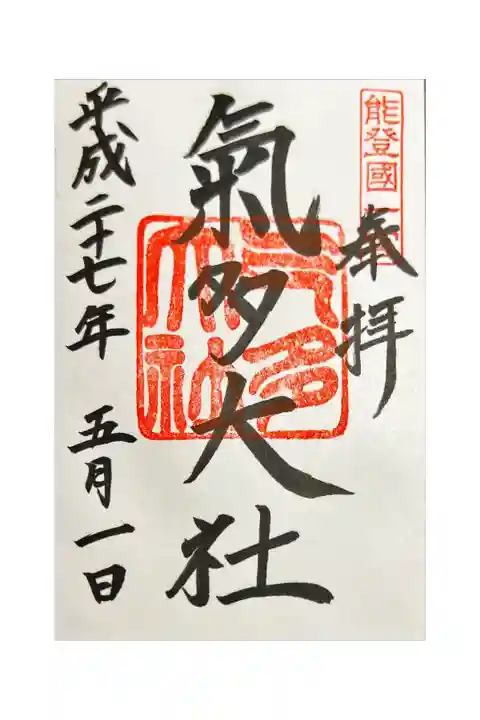 能登國一
奉拝
氣多大社
气多大社
平成二十七年 五月一日